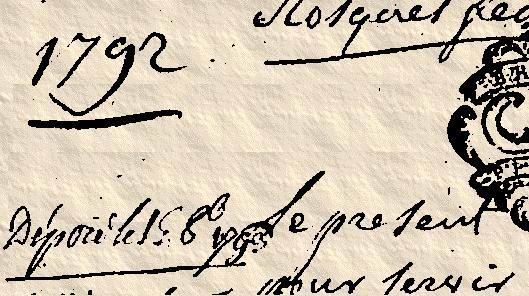 Rosquet
1792
Déposé le 15 8b 1793 Le present
pour servir